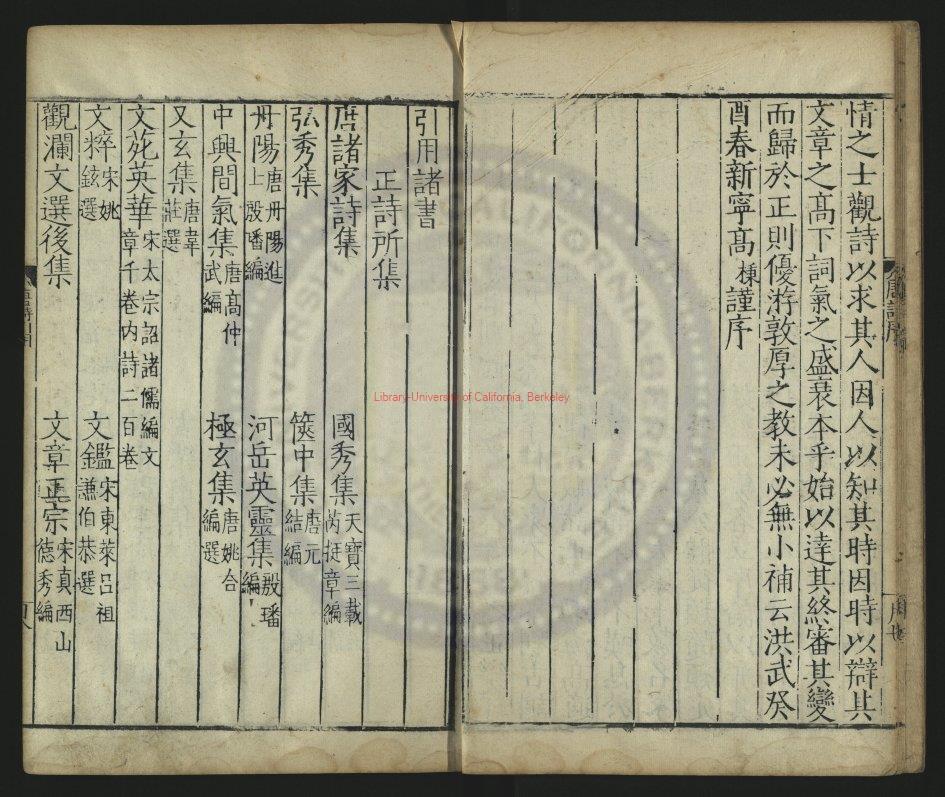 情之士觀詩以求其人因人以知其時因時以辯其
文章之髙下詞氣之盛衰本乎始以逹其終審其變
而歸於正則優游敦厚之教未必無小補云洪武癸
酉春新寧髙棅謹序
引用諸書
正詩所集
唐諸家詩集 國秀集 天寶三載芮挺章編
弘秀集 篋中集 唐元結編
丹陽集 唐丹陽進士殷璠編 河岳英靈集 殷璠編
中興間氣集 唐髙仲武編 極玄集 唐姚合編選
又玄集 唐韋莊選
文苑英華 宋太宗詔諸儒編文章千卷内詩二百卷
文粹 宋姚鉉選 文鑑 宋東萊吕祖謙伯恭選
觀瀾文選後集 文章正宗 宋真西山德秀編
Library-University of California, Berkeley